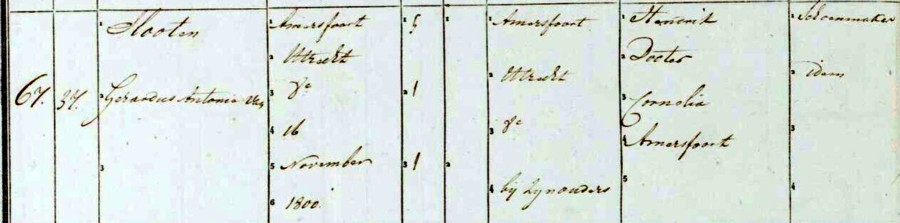 Slooten
67. 37. Gerardus Antonie
Amersfoort
Utrecht
16
November
1800.
1
1
Amersfoort
Utrecht
bij zijn ouders
Hendrik
Dooter
Cornelia
Amersfoort
Schoenmaker
idem